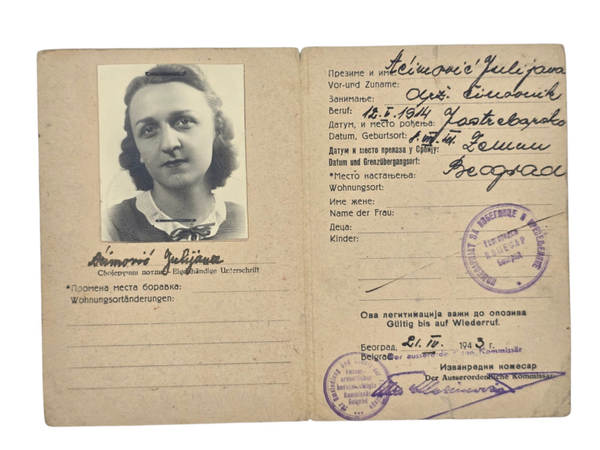 Aćimović Julijana
Своjеручни потпис – Eigenhändige Unterschrift
*Промена места боравка:
Wohnungsortänderungen:
Презиме и име: Aćimović Julijana
Vor-und Zuname:
Занимање: drž. činovnik
Beruf:
Датум, и место рођења: 12. V. 1914 Jastrebarsko
Datum, Geburtsort:
Датум и место прелаза у Србију: Zemun
Datum und Grenzübergangsort:
*Место настањења: Beograd
Wohnungsort:
Име жене:
Name der Frau:
Деца:
Kinder:
КОМЕСАРИЈАТ ЗА ИЗБЕГЛИЦЕ И
КОМЕСАР
Београд
Ова легитимација важи до опозива
Gültig bis auf Wiederruf.
Београд, 21. IV. 1943 г.
Belgrad
Der ausserordentliche Kommissär
Изванредни комесар
Der Ausserordentliche Kommissär
Kommissär
Belgrad